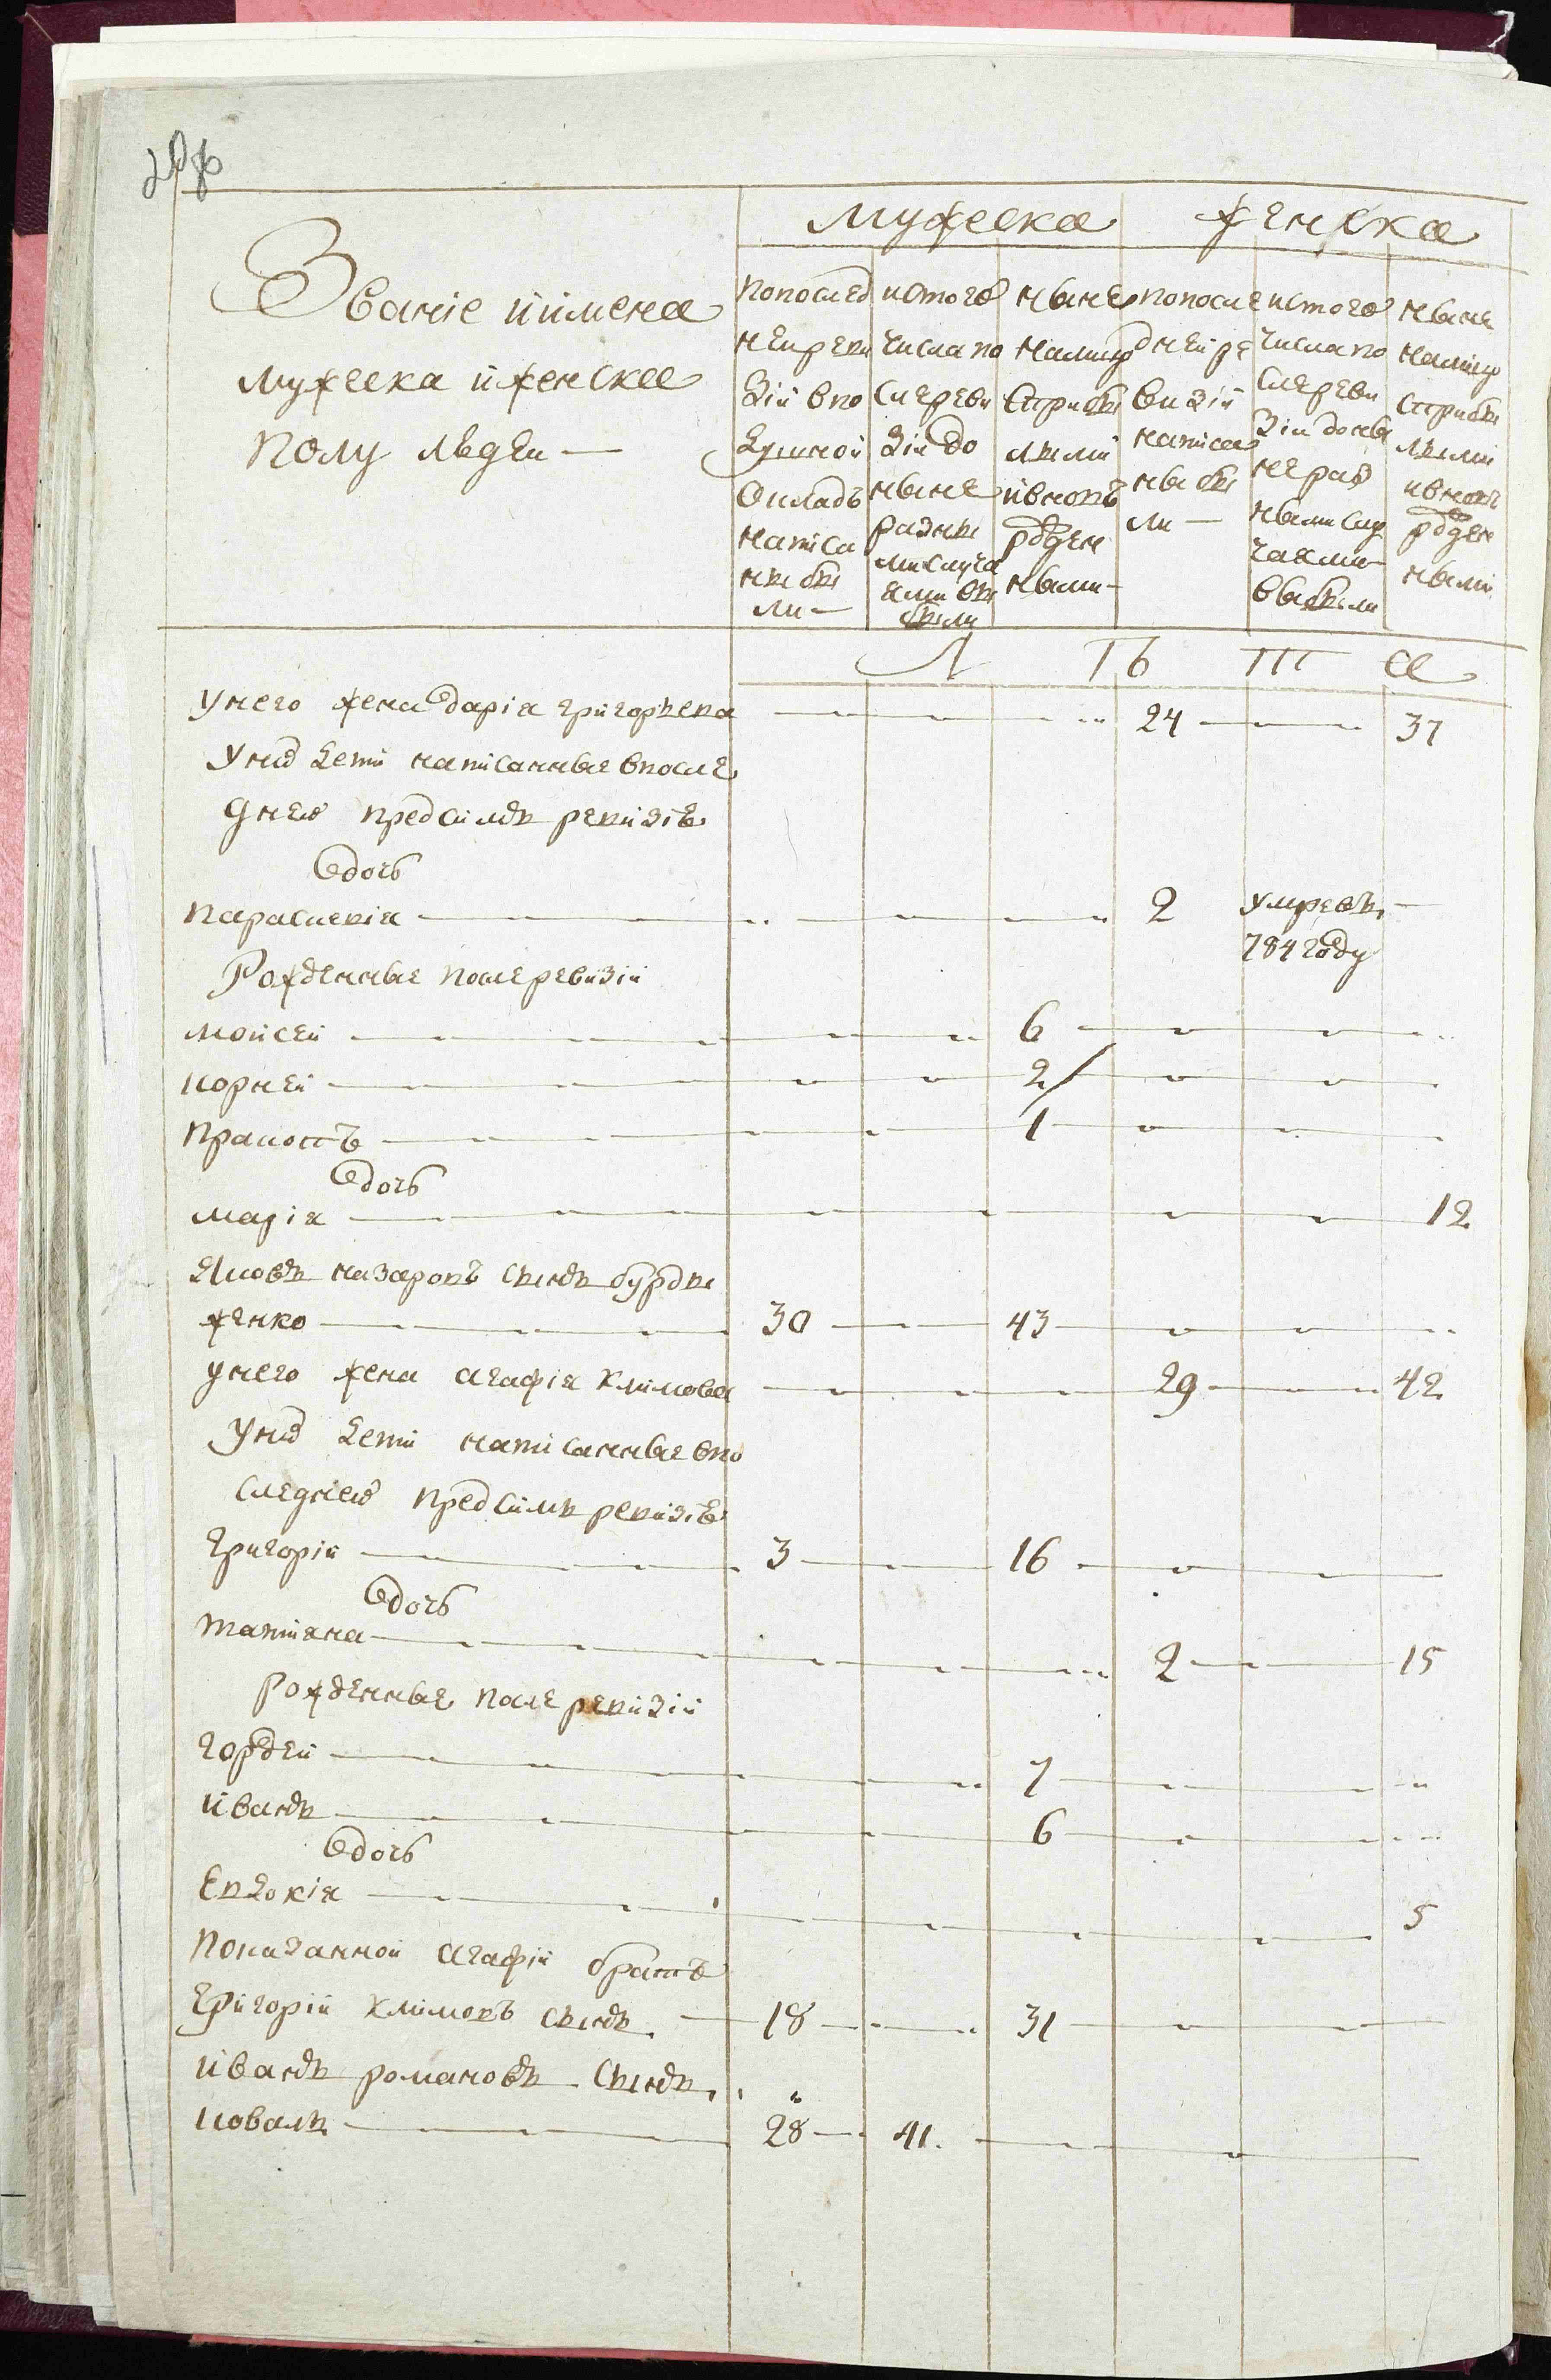 Мужеска Женска
Званіе и имена
мужеска и женска
полу людеи —
попослед
неи реви
зіи впо
душной
окладъ
написа
ны бы
ли —
ис того
числа по
сле реви
зіи до
ныне
разны
ми случа
ями вы
были
ныне
налицо
с прибы
лыми
и вновь
рожден
ными —
по после
дней ре
визіи
написа
ны бы
ли —
ис того
числа по
сле реви
зіи до ны
не раз
ными слу
чаями
выбыли
ныне
налицо
с прибы
лыми
и вновь
рожден
ными
Л Ѣ Т а
у него жена дарія григорьева 24 37
у них дети написанные в после
дней пред симъ ревизіѣ
дочь
параскевія 2 умре въ
784 году
Рожденные после ревизіи
мойсей 6
корней 2
пракопъ 1
дочь
марія 12
Яковъ назаровъ сынъ бурды
женко 30 43
у него жена агафія климова 29 42
у них дети написанные в по
следней пред симъ ревизіѣ
григорій 3 16
дочь
татіяна 2 15
рожденные после ревизіи
гордей 7
иванъ 6
дочь
Евдокія 5
показанной агафіи братъ
григорій климовъ сынъ 18 31
иванъ романовъ сынъ
коваль 28 41.